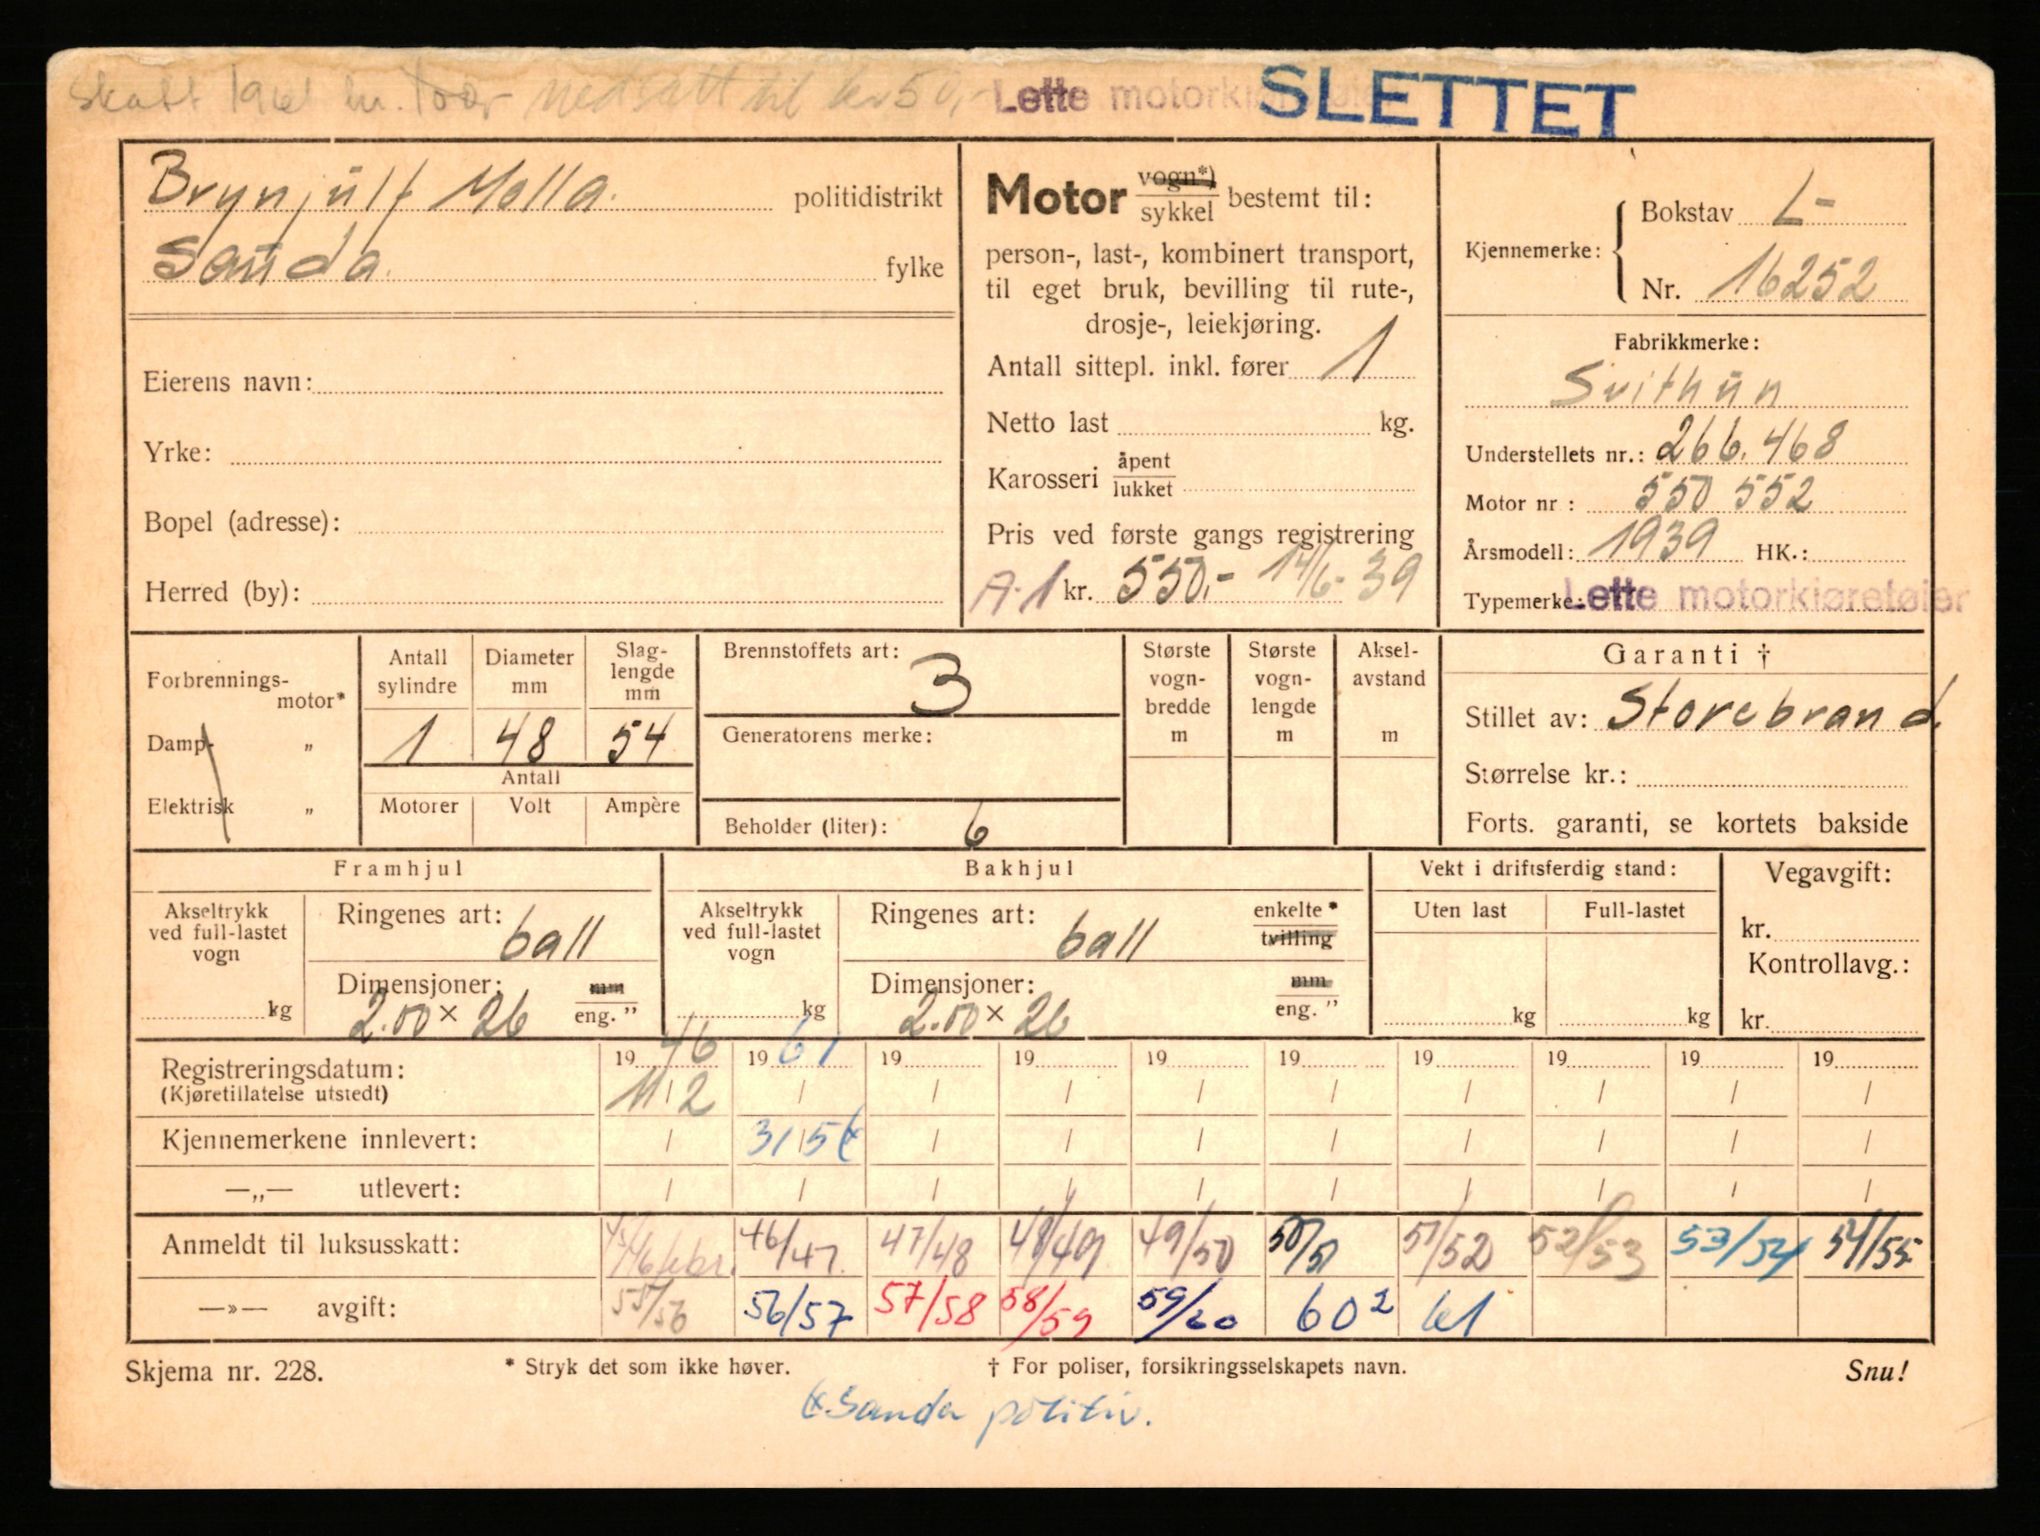 skatt 1961 kr. 100,- nedsatt til kr 50,- Lette SLETTET
Brynjulf Molla. politidistrikt
Sauda. fylke
Eierens navn:
Yrke:
Bopel (adresse):
Herred (by):
Motor vogn*) sykkel bestemt til:
person-, last-, kombinert transport,
til eget bruk, bevilling til rute-,
drosje-, leiekjøring.
Antall sittepl. inkl. fører 1
Netto last kg.
Karosseri åpent lukket
Pris ved første gangs registrering
A-1 kr. 550,- 14/6-39
Bokstav L-
Kjennemerke:
Nr. 16252
Fabrikkmerke:
Svithun
Understellets nr.: 266.468
Motor nr : 550 552
Årsmodell: 1939 HK.:
Typemerke: Lette motorkjøretøier
Forbrennings-
motor*
Damp- „
Elektrisk „
Antall sylindre
Diameter mm
Slag-lengde mm
1 48 54
Antall
Motorer Volt Ampère
Brennstoffets art: 3
Generatorens merke:
Beholder (liter): 6
Største vogn-bredde m
Største vogn-lengde m
Aksel-avstand m
Garanti †
Stillet av: Storebrand.
Størrelse kr.:
Forts. garanti, se kortets bakside
Framhjul
Akseltrykk ved full-lastet vogn
kg
Ringenes art: ball
Dimensjoner: mm
2.00 × 26 eng. ”
Bakhjul
Akseltrykk ved full-lastet vogn
kg
Ringenes art: ball enkelte* tvilling
Dimensjoner: mm
2.00 × 26 eng. ”
Vekt i driftsferdig stand:
Uten last Full-lastet
kg kg
Vegavgift:
kr.
Kontrollavg.:
kr.
Registreringsdatum: 19 46 19 61 19 19 19 19 19 19 19 19
(Kjøretillatelse utstedt) 11/2 / / / / / / / / /
Kjennemerkene innlevert: / 31/5 / / / / / / / /
—„— utlevert: / / / / / / / / / /
Anmeldt til luksusskatt: 45/46 febr. 46/47. 47/48 48/49 49/50 50/51 51/52 52/53 53/54 54/55
—»— avgift: 55/56 56/57 57/58 58/59 59/60 60² 61
Skjema nr. 228. * Stryk det som ikke høver. † For poliser, forsikringsselskapets navn. Snu!
Sauda politiv.